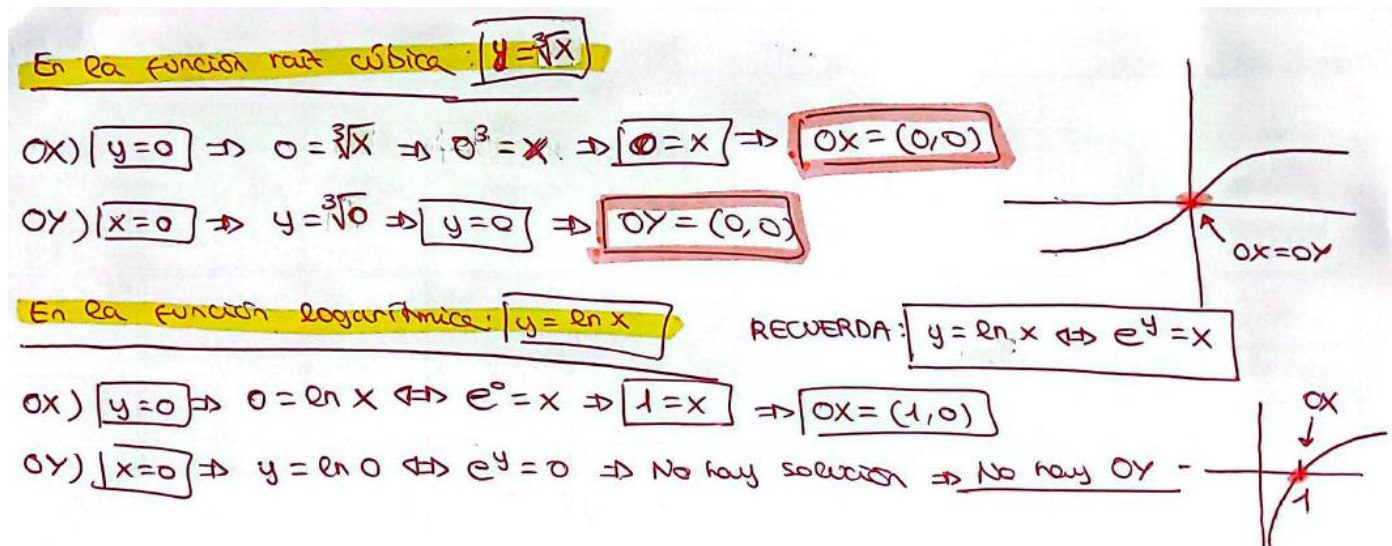 En la función raíz cúbica: y = ∛x
OX) y=0 ⇒ 0 = ∛x ⇒ 0³ = x ⇒ 0 = x ⇒ OX = (0,0)
OY) x=0 ⇒ y = ∛0 ⇒ y=0 ⇒ OY = (0,0)
OX=OY
En la función logarítmica: y = ln x
RECUERDA: y = ln x ⇔ e^y = x
OX) y=0 ⇒ 0 = ln x ⇔ e⁰ = x ⇒ 1 = x ⇒ OX = (1,0)
OX
OY) x=0 ⇒ y = ln 0 ⇔ e^y = 0 ⇒ No hay solución ⇒ No hay OY -
1